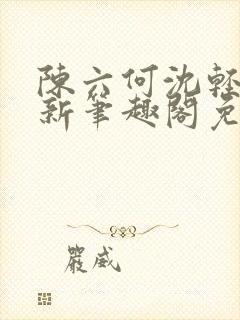 陳六何沈輕
新筆趣閣免
嚴威